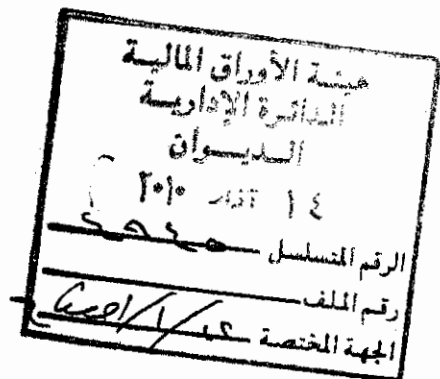 هيئة الأوراق المالية
الدائرة الإدارية
الديوان
١٤ آذار ٢٠١٠
الرقم المتسلسل
رقم الملف
الجهة المختصة